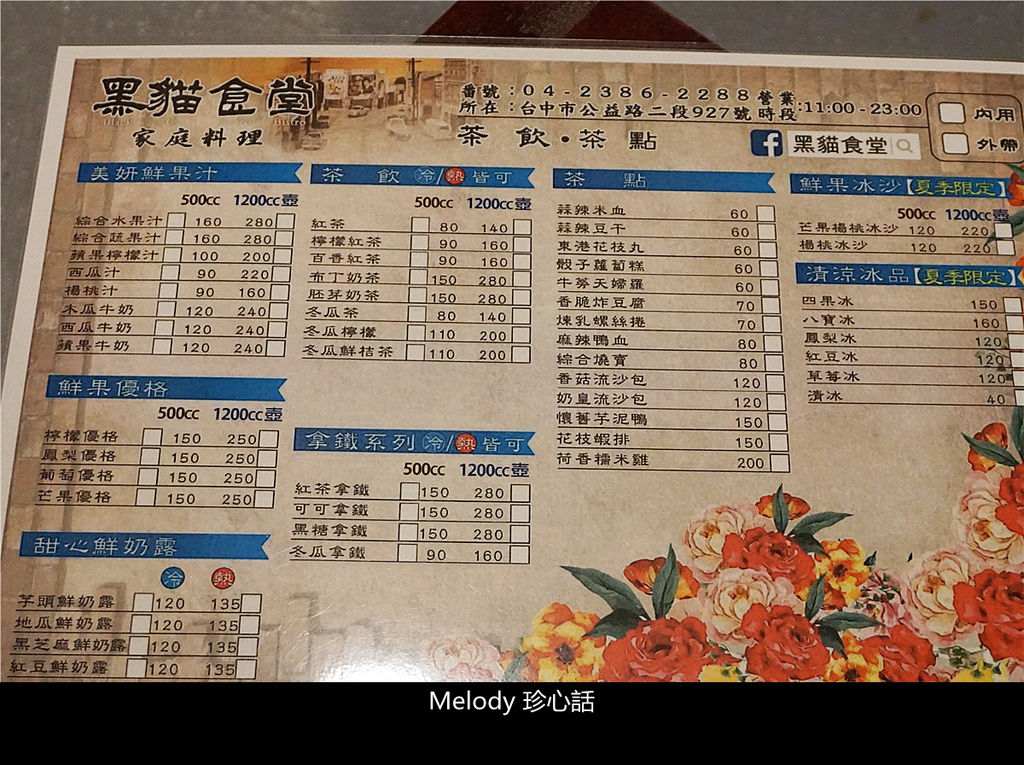 黑貓食堂
家庭料理
番號：04-2386-2288
所在：台中市公益路二段927號
營業時段：11:00-23:00
茶飲·茶點
黑貓食堂
內用
外帶
美妍鮮果汁
500cc 1200cc壺
綜合水果汁 160 280
綜合蔬果汁 160 280
蘋果檸檬汁 100 200
西瓜汁 90 220
楊桃汁 90 160
木瓜牛奶 120 240
西瓜牛奶 120 240
蘋果牛奶 120 240
鮮果優格
500cc 1200cc壺
檸檬優格 150 250
鳳梨優格 150 250
葡萄優格 150 250
芒果優格 150 250
甜心鮮奶露
冷 熱
芋頭鮮奶露 120 135
地瓜鮮奶露 120 135
黑芝麻鮮奶露 120 135
紅豆鮮奶露 120 135
茶飲 冷/熱 皆可
500cc 1200cc壺
紅茶 80 140
檸檬紅茶 90 160
百香紅茶 90 160
布丁奶茶 150 280
胚芽奶茶 150 280
冬瓜茶 80 140
冬瓜檸檬 110 200
冬瓜鮮桔茶 110 200
拿鐵系列 冷/熱 皆可
500cc 1200cc壺
紅茶拿鐵 150 280
可可拿鐵 150 280
黑糖拿鐵 150 280
冬瓜拿鐵 90 160
茶點
蒜辣米血 60
蒜辣豆干 60
東港花枝丸 60
骰子蘿蔔糕 60
牛蒡天婦羅 60
香脆炸豆腐 70
煉乳螺絲捲 70
麻辣鴨血 80
綜合燒賣 80
香菇流沙包 120
奶皇流沙包 120
懷舊芋泥鴨 150
花枝蝦排 150
荷香糯米雞 200
鮮果冰沙【夏季限定】
500cc 1200cc壺
芒果楊桃冰沙 120 220
楊桃冰沙 120 220
清涼冰品【夏季限定】
四果冰 150
八寶冰 160
鳳梨冰 120
紅豆冰 120
草莓冰 120
清冰 40
Melody 珍心話